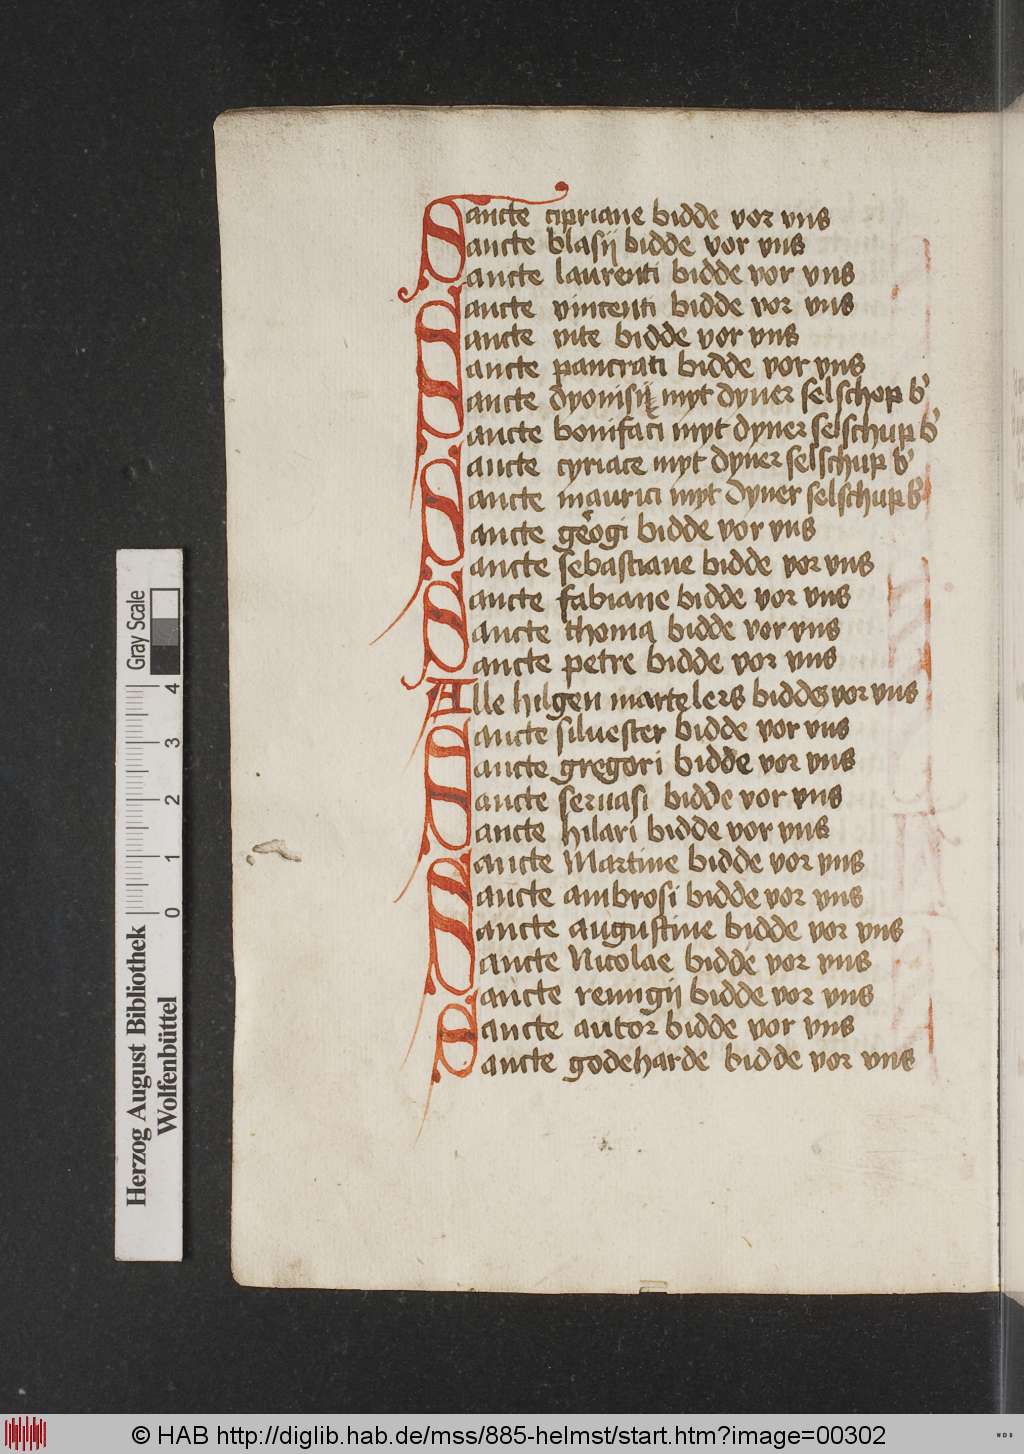 Sancte cipriane bidde vor vns
Sancte blasij bidde vor vns
Sancte laurenti bidde vor vns
Sancte vincenti bidde vor vns
Sancte vite bidde vor vns
Sancte pancrati bidde vor vns
Sancte dyonisij myt dyner selschop b'
Sancte bonifaci myt dyner selschup b'
Sancte cyriace myt dyner selschup b'
Sancte maurici myt dyner selschup b'
Sancte georgi bidde vor vns
Sancte sebastiane bidde vor vns
Sancte fabiane bidde vor vns
Sancte thoma bidde vor vns
Sancte petre bidde vor vns
Alle hilgen martelers bidden vor vns
Sancte siluester bidde vor vns
Sancte gregori bidde vor vns
Sancte seruasi bidde vor vns
Sancte hilari bidde vor vns
Sancte Martine bidde vor vns
Sancte ambrosi bidde vor vns
Sancte augustine bidde vor vns
Sancte Nicolae bidde vor vns
Sancte remigij bidde vor vns
Sancte autor bidde vor vns
Sancte godeharde bidde vor vns
Gray Scale
4 3 2 1 0
Herzog August Bibliothek
Wolfenbüttel
© HAB http://diglib.hab.de/mss/885-helmst/start.htm?image=00302